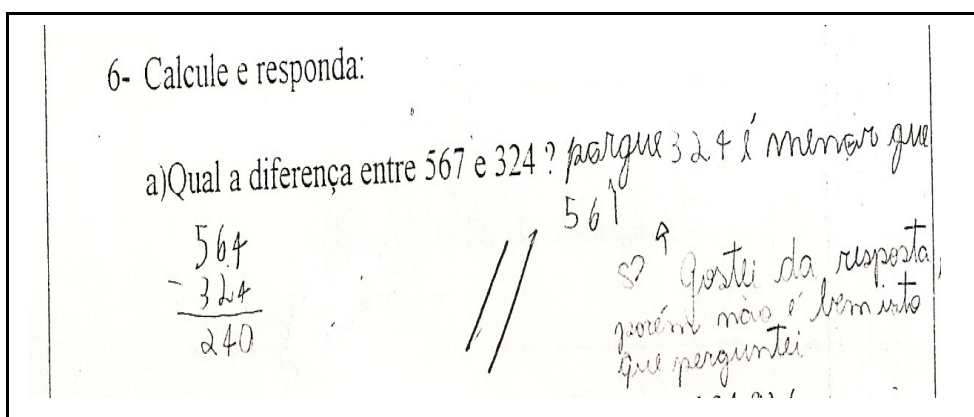 6- Calcule e responda:
a)Qual a diferença entre 567 e 324 ? porque 324 é menor que
561
564
- 324
240
Gostei da resposta,
porém não é bem isto
que perguntei